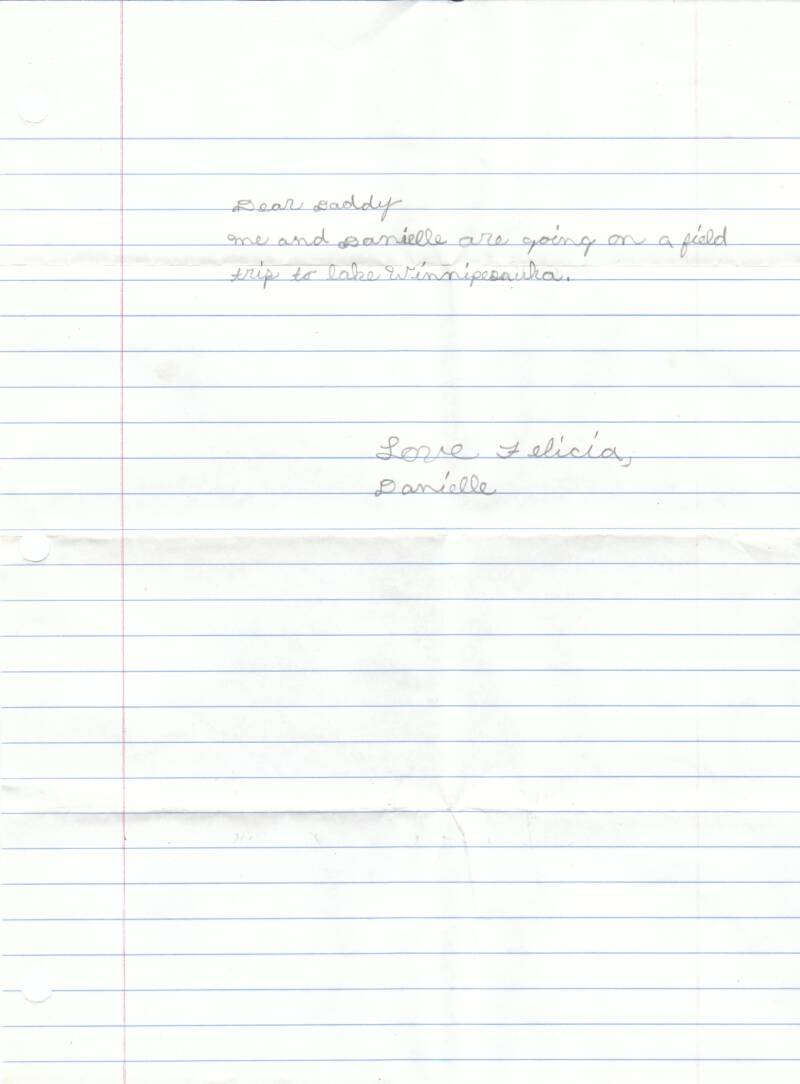 Dear Daddy
me and Danielle are going on a field
trip to lake Winnipesauka.
Love Felicia,
Danielle